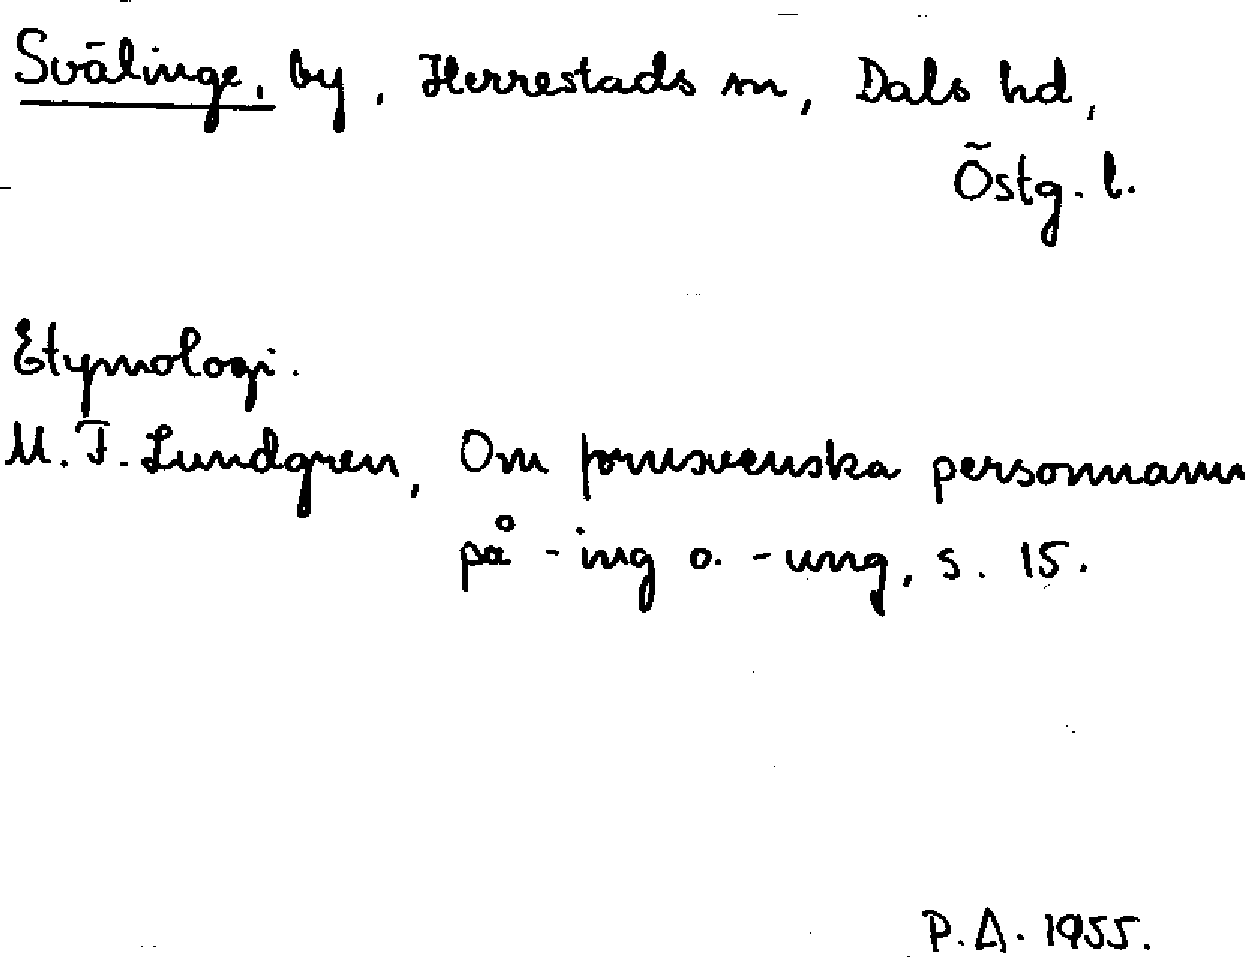 Svälinge, by, Herrestads sn, Dals hd,
Östg. l.
Etymologi.
M. F. Lundgren, Om fornsvenska personnamn
på -ing o. -ung, s. 15.
P.A. 1955.